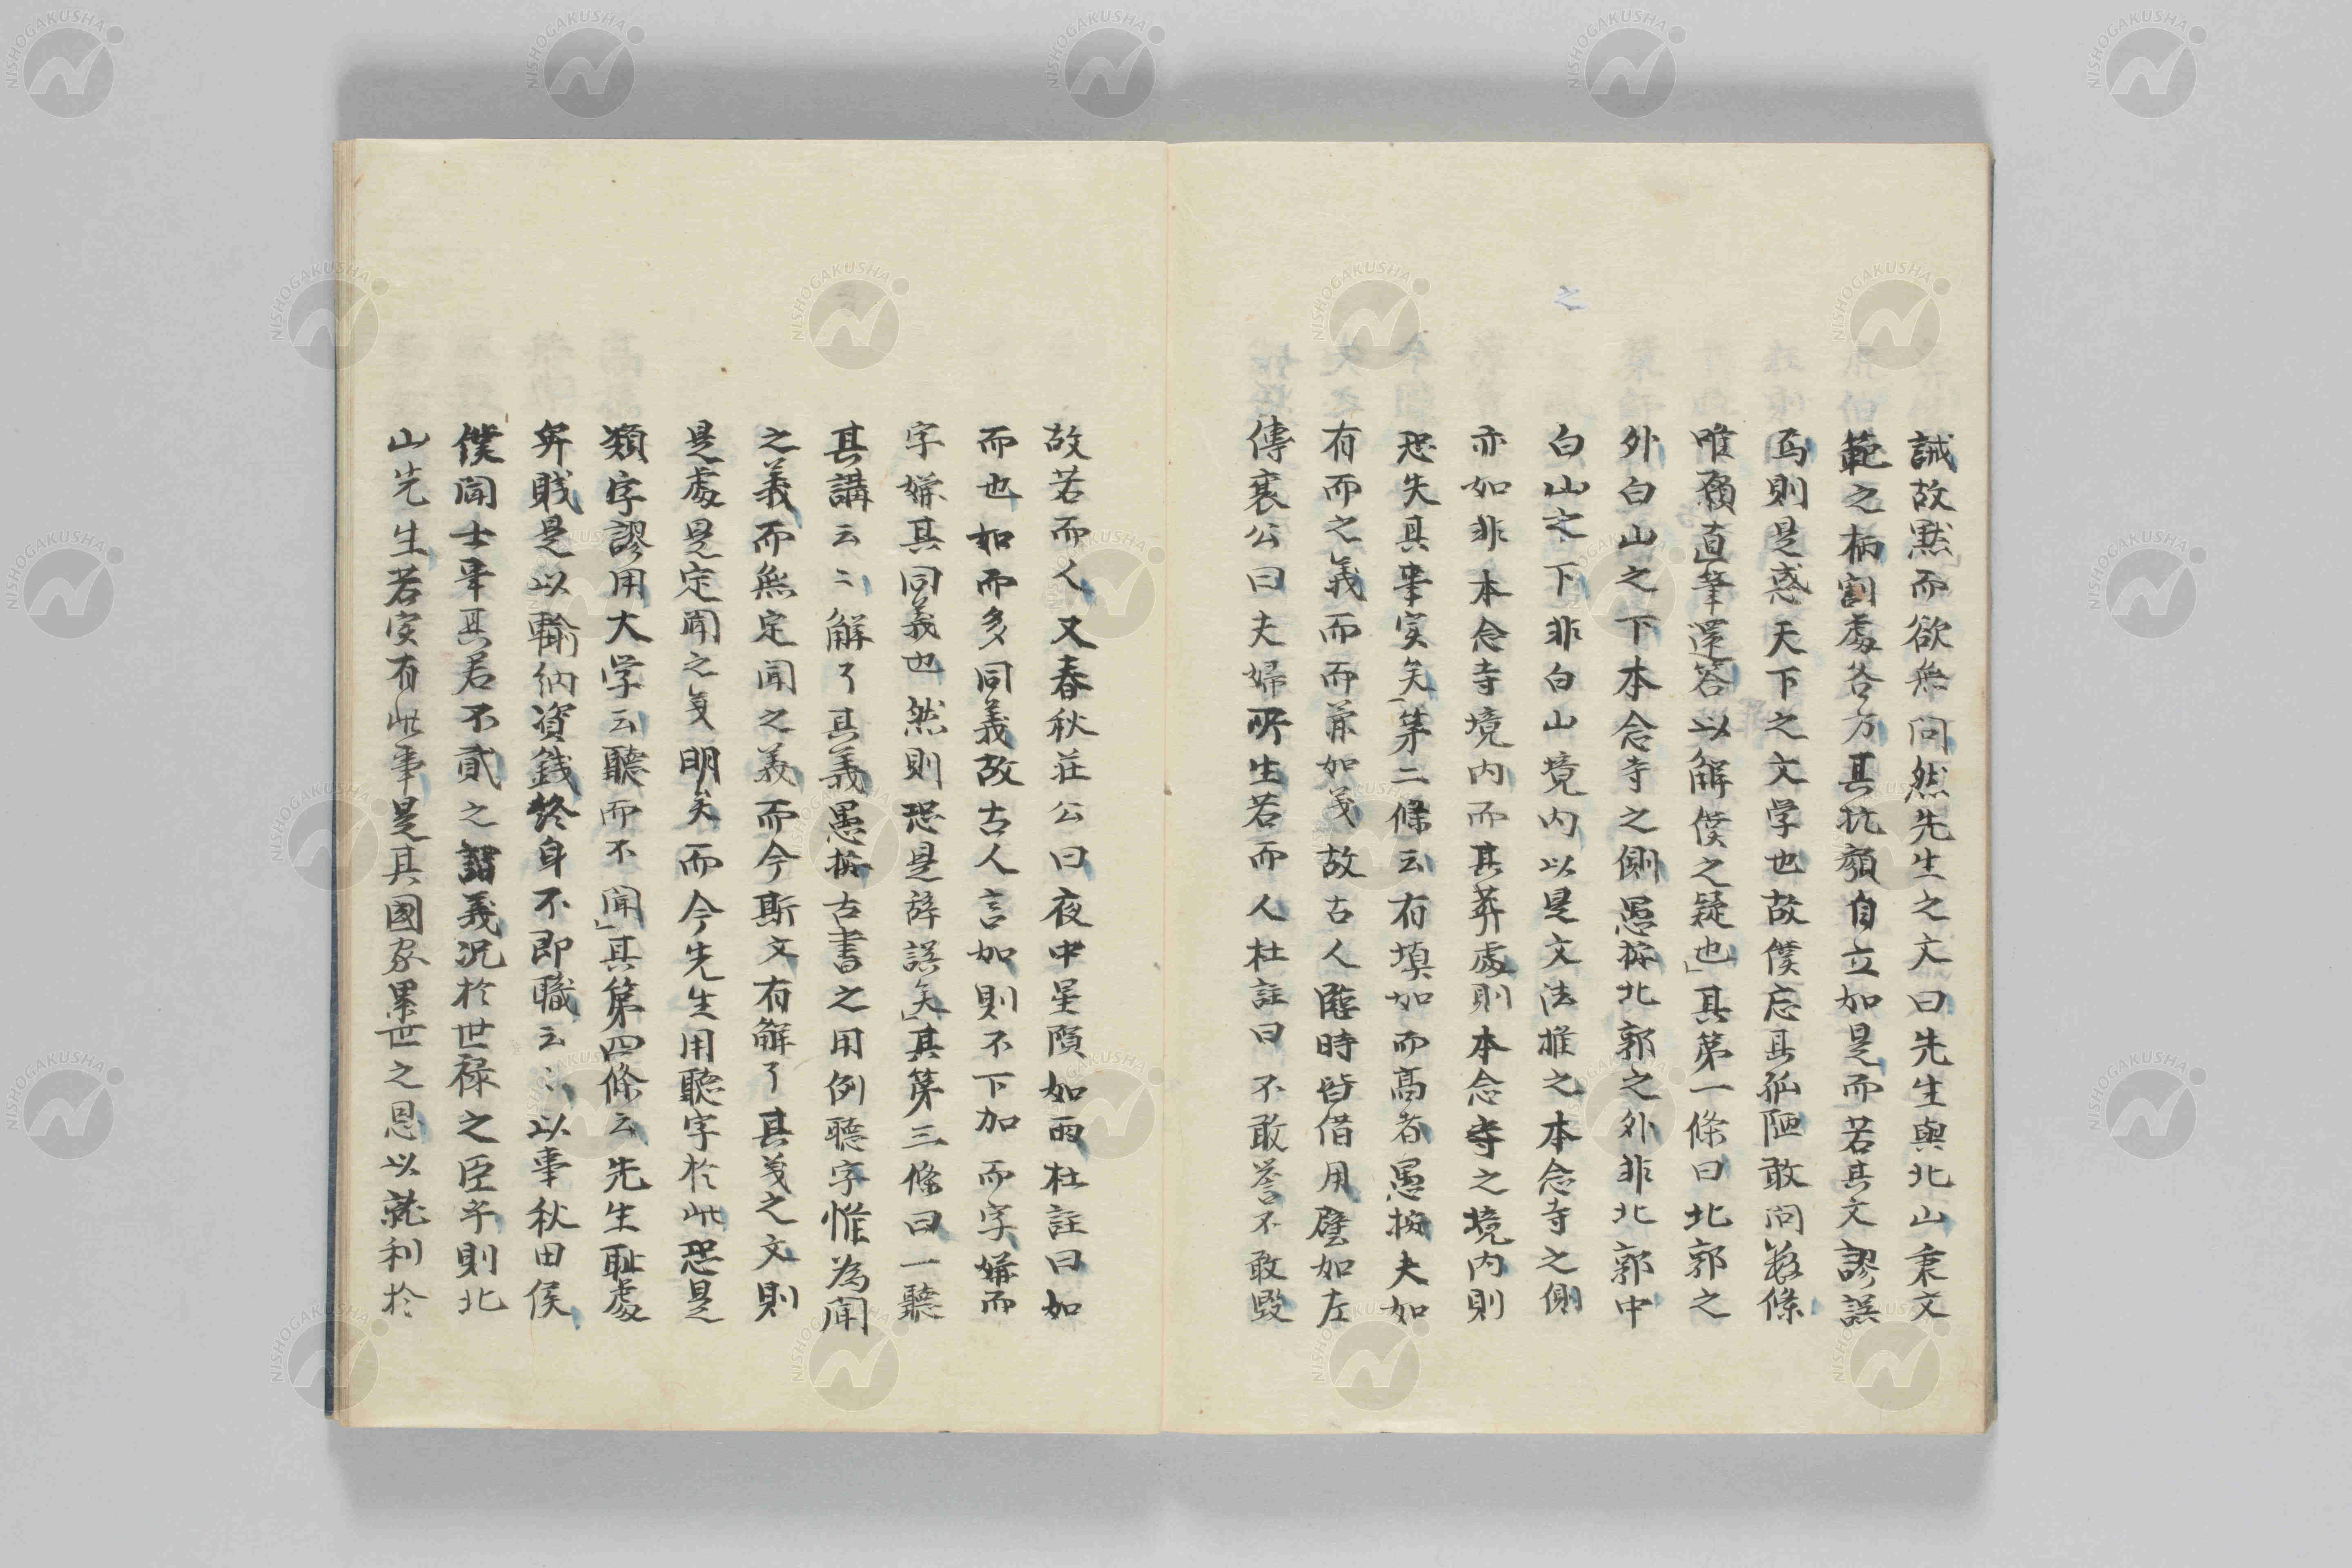 誠故黙而欲無問然先生之文曰先生與北山秉文
範之柄割處各方其抗顔自立如是而若其文謬誤
焉則是惑天下之文学也故僕忘其孤陋敢問数條
唯願直筆還答以解僕之疑也」其第一條曰北郭之
外白山之下本念寺之側愚按北郭之外非北郭中
白山之下非白山境内以是文法推之本念寺之側
亦如非本念寺境内而其葬處則本念寺之境内則
恐失其事実矣」第二條云有填如而高者愚按夫如
有而之義而而兼如義故古人臨時皆借用譬如左
傳襄公曰夫婦所生若而人杜註曰不敢誉不敢毀
故若而人又春秋荘公曰夜中星隕如雨杜註曰如
而也如而多同義故古人言如則不下加而字嫌而
字嫌其同義也然則恐是辞誤矣」其第三條曰一聴
其講云々解了其義愚按古書之用例聴字惟為聞
之義而無定聞之義而今斯文有解了其義之文則
是處是定聞之
明矣而今先生用聴字於此恐是
類字謬用大学云聴而不聞」其第四條云先生恥處
弁賎是以輸納資銭終身不即職云々以事秋田侯
僕聞士事其君不貳之
義况於世禄之臣乎則北
山先生若実有此事是其國家累世之恩以就利於
之
NISHOGAKUSHA